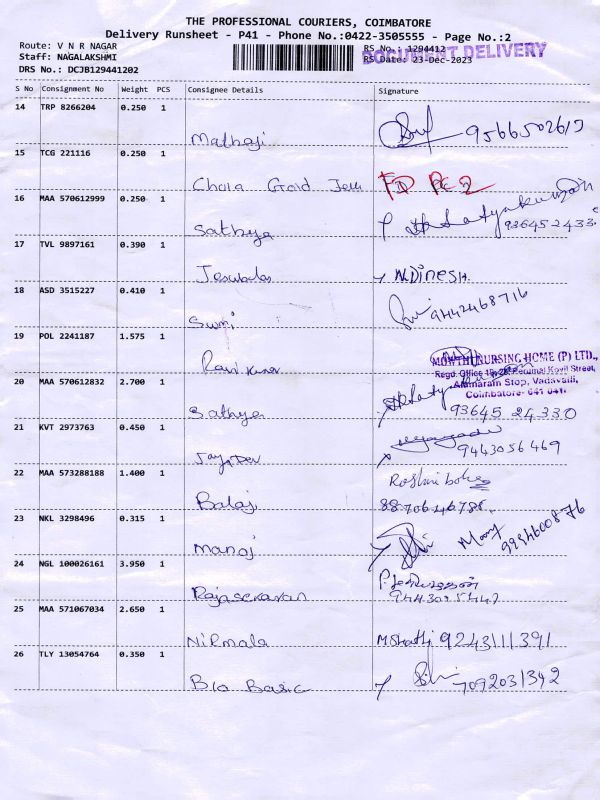 THE PROFESSIONAL COURIERS, COIMBATORE
Delivery Runsheet - P41 - Phone No.:0422-3505555 - Page No.:2
Route: V N R NAGAR
Staff: NAGALAKSHMI
DRS No.: DCJB129441202
RS No.: 1294412
RS Date: 23-Dec-2023
DOCUMENT DELIVERY
S No Consignment No Weight PCS Consignee Details Signature
14 TRP 8266204 0.250 1
Mathaji 9566502619
15 TCG 221116 0.250 1
Chola Gold
16 MAA 570612999 0.250 1
Sathya Sathyakumar
936452433
17 TVL 9897161 0.390 1
N.DINESH.
18 ASD 3515227 0.410 1
9442468716
19 POL 2241187 1.575 1
Ravi Kumar
MOWTHI NURSING HOME (P) LTD.,
Perumal Kovil Street,
Stop, Vadavalli,
Coimbatore- 641 041.
20 MAA 570612832 2.700 1
Sathya 93645 24330
21 KVT 2973763 0.450 1
Jaya Dev 9443056469
22 MAA 573288188 1.400 1
Balaji
23 NKL 3298496 0.315 1
Manoj 9994600876
24 NGL 100026161 3.950 1
Rajasekaran
25 MAA 571067034 2.650 1
Nirmala 9243111391
26 TLY 13054764 0.350 1
Bio Basic 7092031342